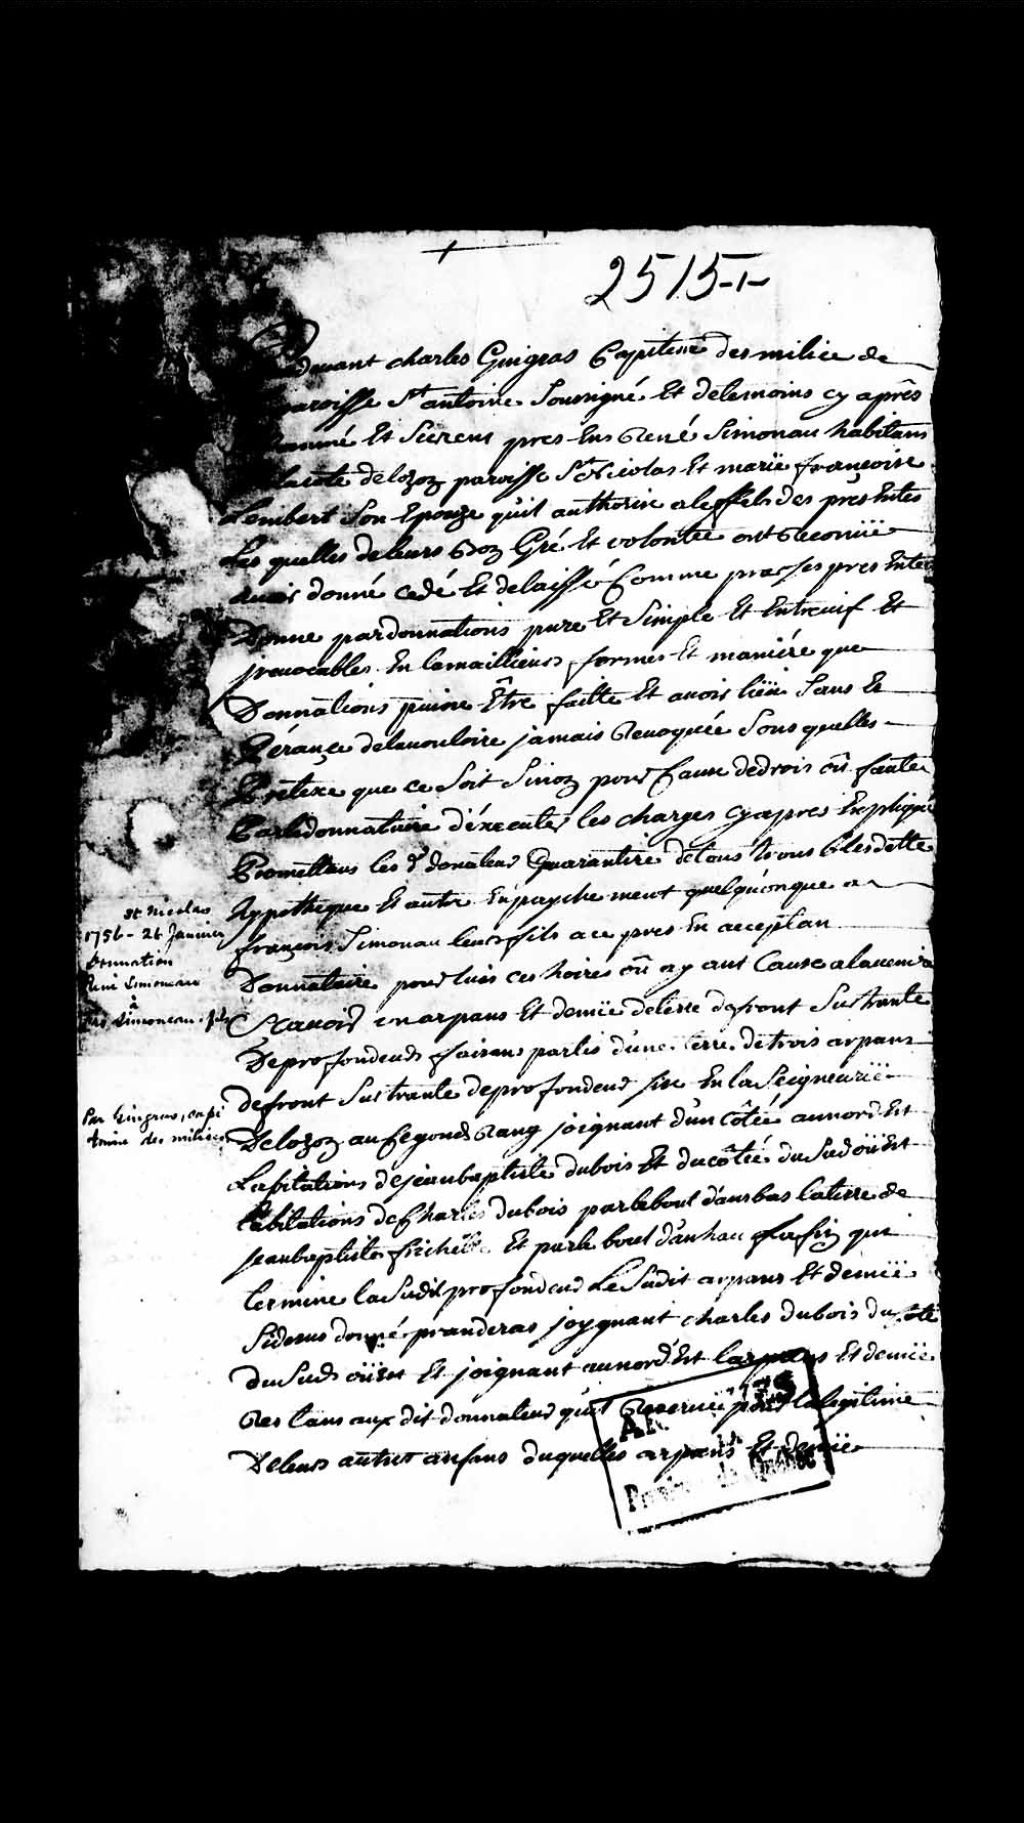 2515-1-
devant charles Guigras Capitene des milice de
paroisse St antoine Soussigné Et delesmoins cy aprês
nommé Et Sierens pres Ens René Simonau habitans
lacote delozoz paroisse St Nicolas Et marïe françoise
Lembert Son Epouze quil authorise aleffels des pres Entes
Les quelles deleurs boz Gré Et volontée ont Reconnüe
avoir donné cedé Et delaissé Comme par ses pres Entes
Donne pardonnations pure Et Simple Et Entreuif Et
jrauocables En lamaillieurs formes Et maniére que
Donnations puisse Être faitte Et avoir liëu Sans Le
Rérance delauouloire jamais Reuoquée Sous quelles
Prétexe que ce Soit Sinoz pour Cause dedrois oû fautes
Parledonnataire déxecuter les charges cyapres Expliqué
Promettans les dt donateur Guarantire detous trous bles dette
hypotheque Et autre Enpayche ment quelquonque a
françois Simonau leurs fils a ce pres En acceptan
Donnataire pour luis ces hoires oû ay ant Cause alauenire
Scauoir un arpans Et demïe deterre defront Sus trante
Deprofondeur faisans partis dune terre detrois arpans
defront Sus trante deprofondeur size En la Seigneurïe
Delozoz au Segond Rang joignant dun côtée aunord Est
Labitations dejeanbaptiste dubois Et ducôtée du Sudoüest
Labitations deCharles dubois parlebout dansbas laterre de
jeanbaptiste frichet Et parle bout danhau Lafiz qui
termine la Sudit profondeur Le Sudit arpans Et demïe
Sidesus donné pranderas joygnant charles dubois du côté
du Sud oüest Et joignant aunord Est larpans Et demïe
Res tans aux dit donnateur quil Reservue pour lalegitime
Deleurs autres anfans duquelles arpans Et demïe
St Nicolas
1756 - 24 Janvier
Donnation
René Simoneau
à
Frs Simoneau fils
Par Gingras, capi
taine des milices